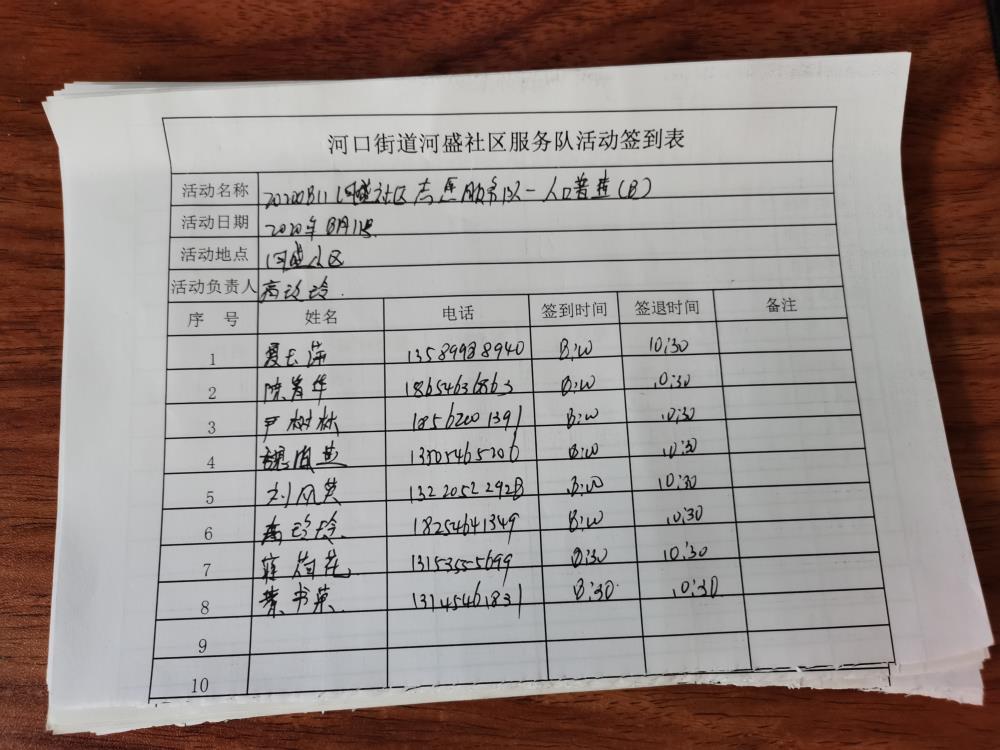 河口街道河盛社区服务队活动签到表
活动名称 20200811河盛社区志愿服务队-人口普查(8)
活动日期 2020年8月11号
活动地点 河盛社区
活动负责人 高玲玲.
序 号 姓名 电话 签到时间 签退时间 备注
1 13589988940 8:00 10:30
2 陈芳华 18654636863 8:00 10:30
3 尹树林 18562001391 8:00 10:30
4 13305465206 8:00 10:30
5 刘风英 13220522928 8:00 10:30
6 18254641349 8:00 10:30
7 蒋菊花 13153555699 8:30 10:30
8 书英 13145461831 8:30 10:30
9
10